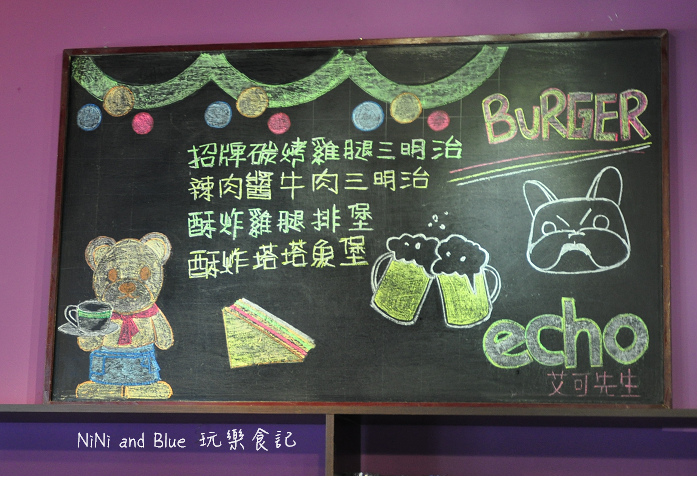 BURGER
招牌碳烤雞腿三明治
辣肉醬牛肉三明治
酥炸雞腿排堡
酥炸塔塔魚堡
echo
艾可先生
NiNi and Blue 玩樂食記